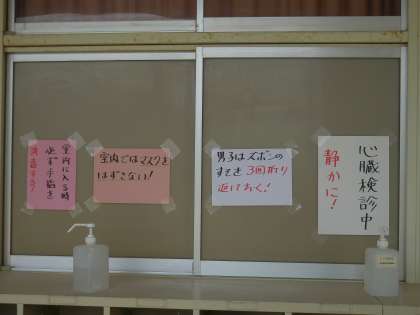 室内に入る時
必ず手指を
消毒する!
室内ではマスクを
はずさない!
男子はズボンの
すそを3回折り
返しておく!
心臓検診中
静かに!